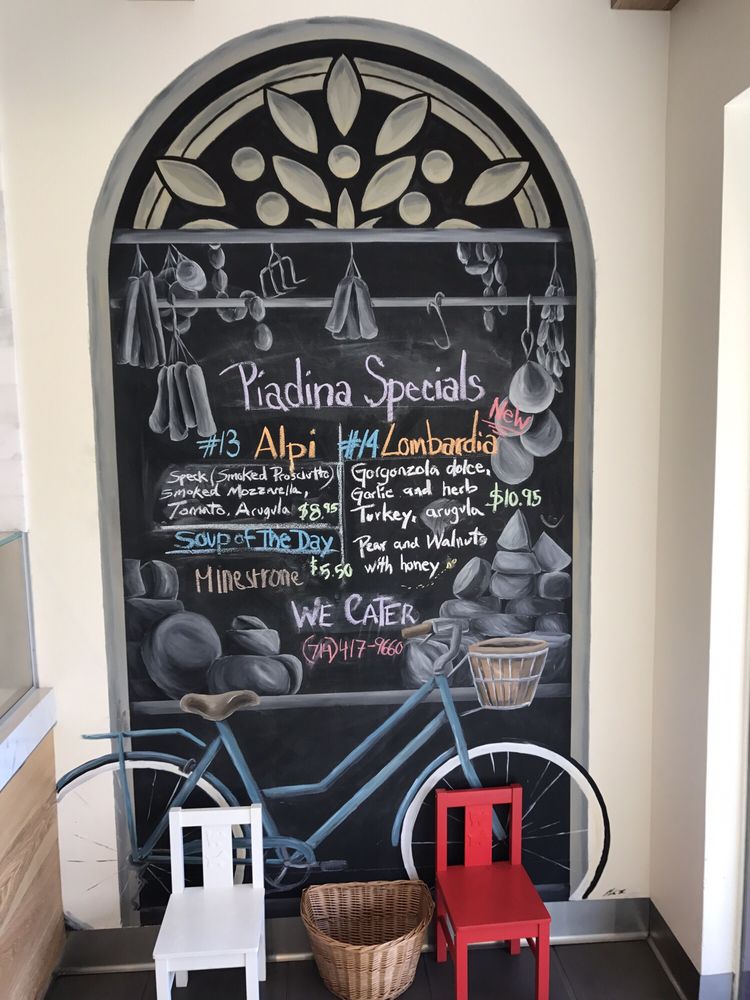 Piadina Specials
New
#13 Alpi
Speck (Smoked Prosciutto)
Smoked Mozzarella,
Tomato, Arugula $8.95
Soup of The Day
Minestrone $5.50
#14 Lombardia
Gorgonzola dolce,
Garlic and herb
Turkey, arugula $10.95
Pear and Walnuts
with honey
WE CATER
(714)417-9660